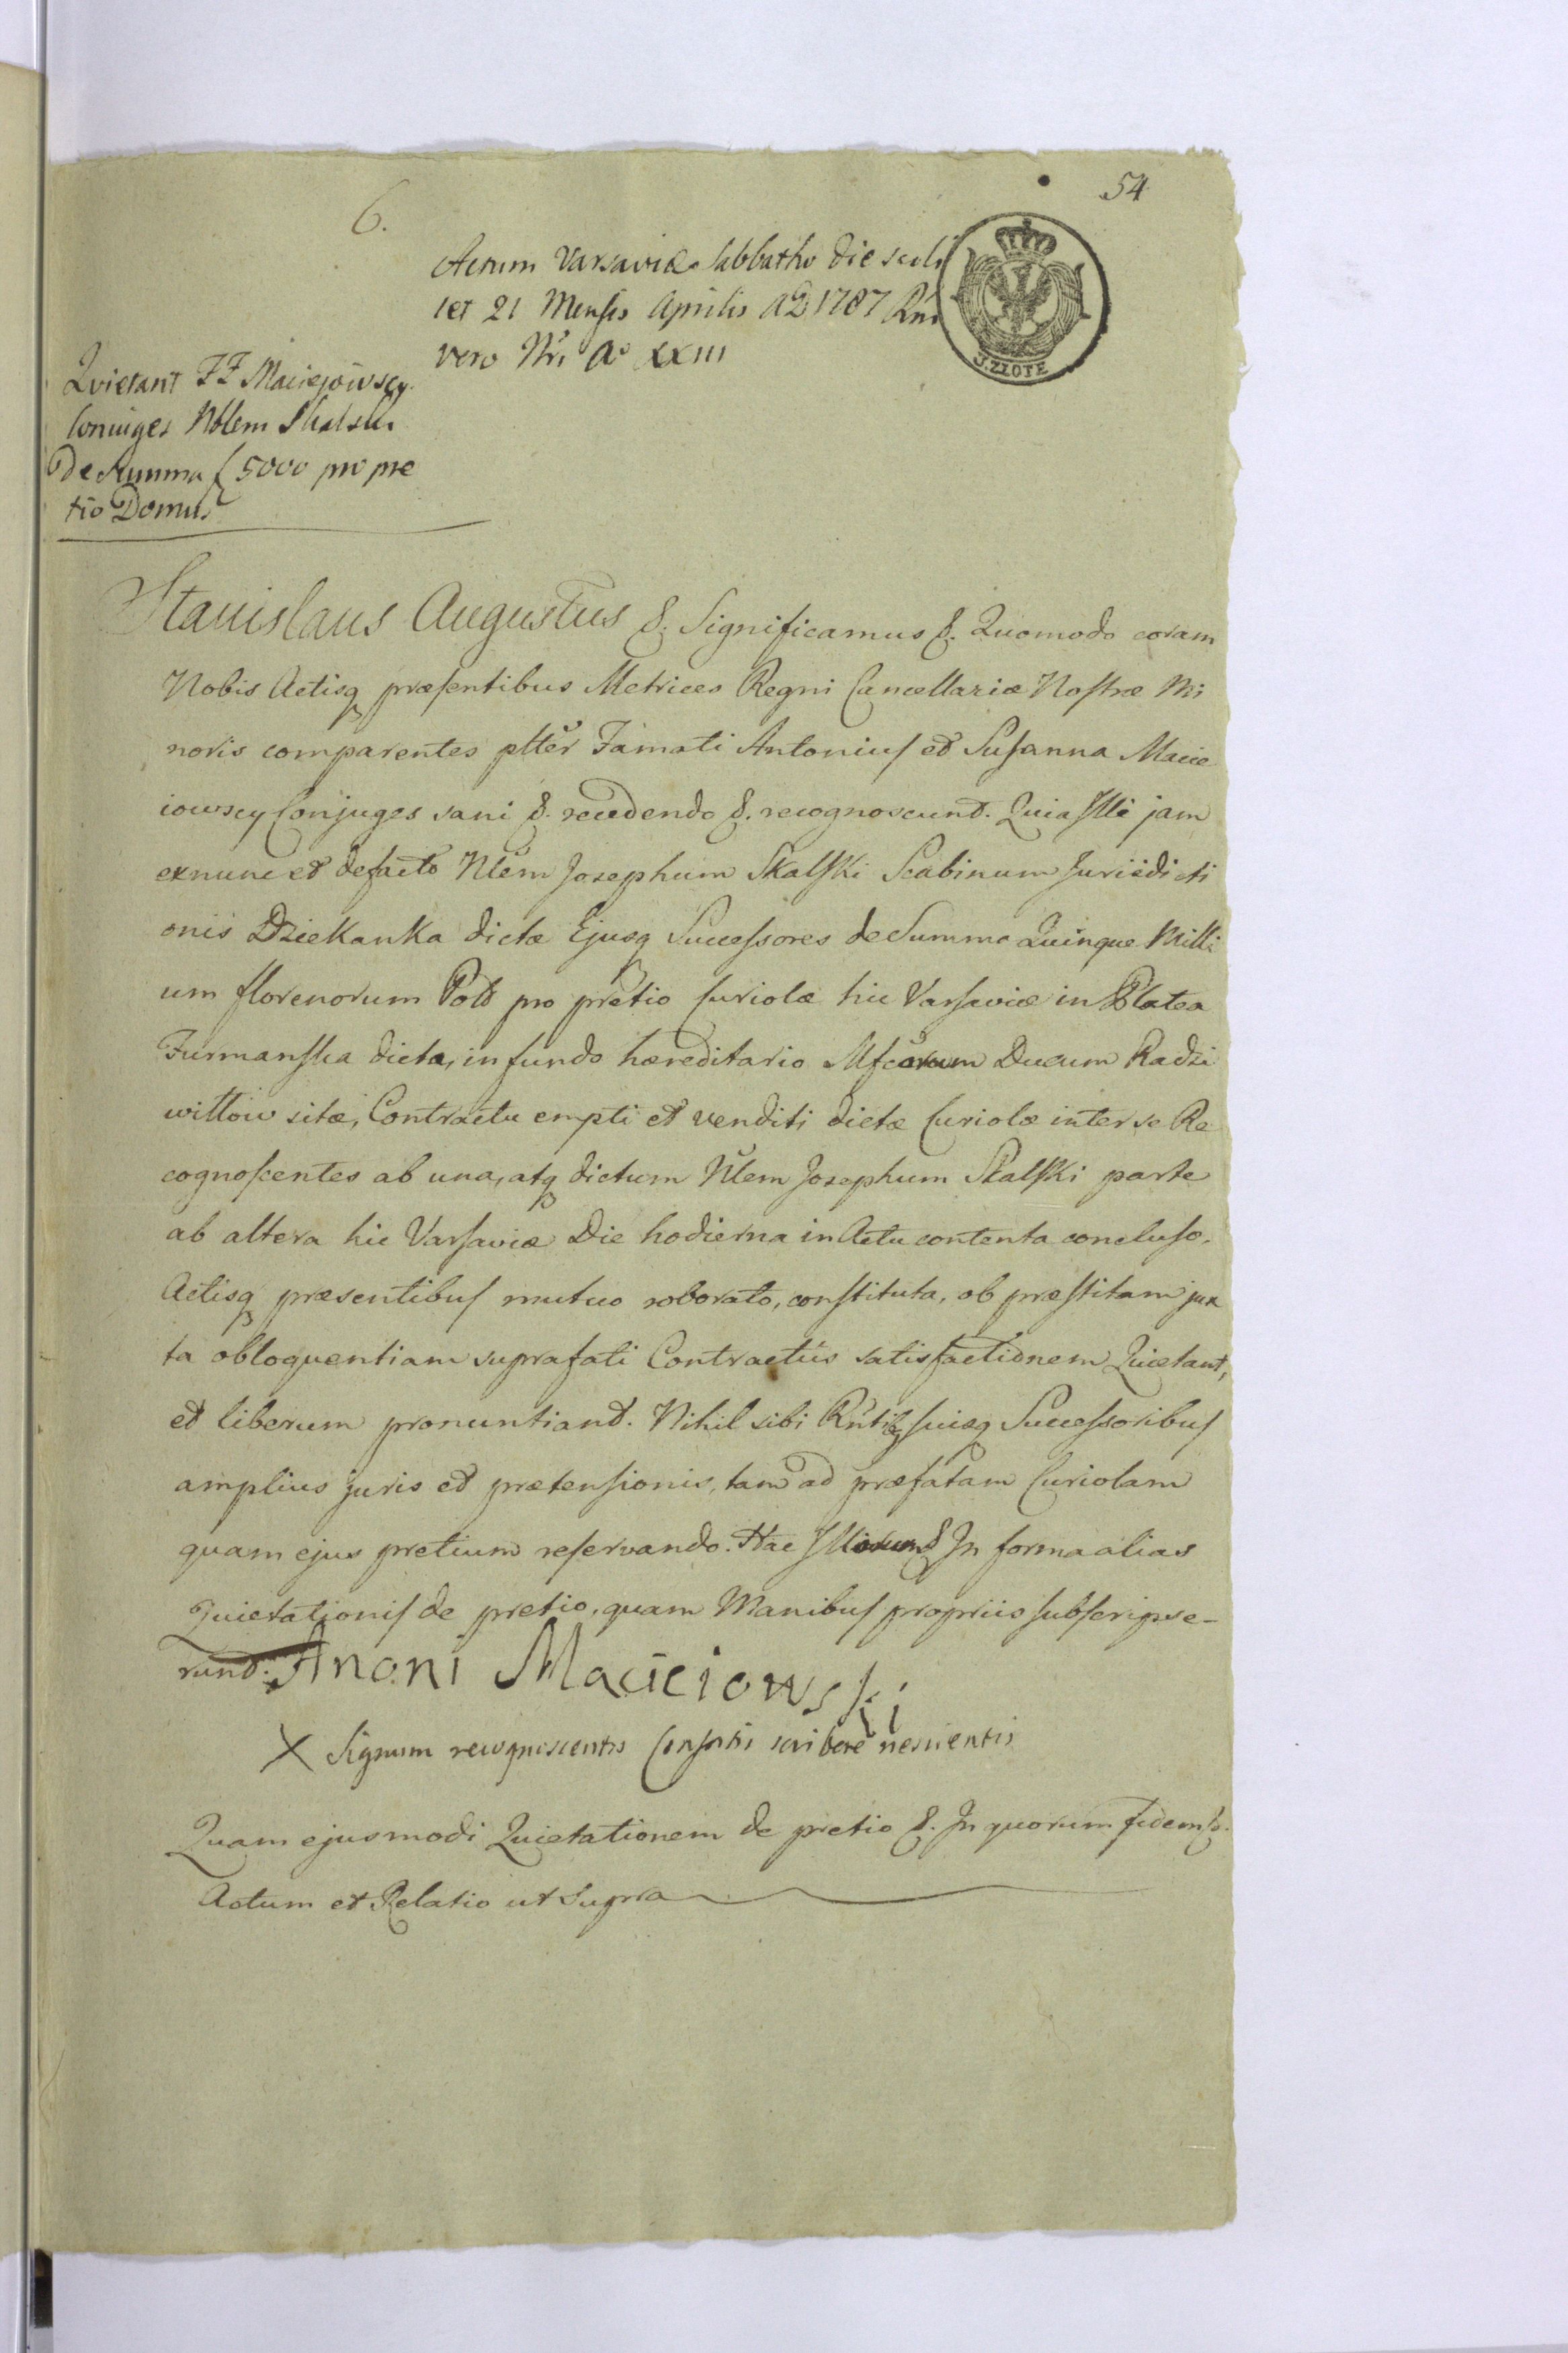 54
6.
Actum Varsaviæ Sabbatho die scili
cet 21 Mensis Aprilis AD 1787 Rni
vero Nri Aº XXIII
3.ZŁOTE
Qvietant FF Maciejowscy
Coniuges Nblem Skalski
De Summa f 5000 pro pre
tio Domus
Stanislaus Augustus &. Significamus &. Quomodo coram
Nobis Actisq præsentibus Metrices Regni Cancellariæ Nostræ Mi
noris comparentes plter Famati Antonius et Susanna Macie
iowscy Conjuges sani &. recedendo &. recognoscunt. Quia Illi jam
exnunc et defacto Nlem Josephum Skalski Scabinum Jurisdicti
onis Dziekanka dictæ Ejusq Successores de Summa Quinque Milli
um florenorum Pol pro pretio Curiolæ hic Varsaviæ in Platea
Furmanska dicta, in fundo hæreditario Mfcorum Ducum Radzi
wiłłow sitæ, Contractu empti et venditi dictæ Curiolæ inter se Re
cognoscentes ab una, atq dictum Nlem Josephum Skalski parte
ab altera hic Varsaviæ Die hodierna in Actu contenta concluso,
Actisq præsentibus mutuo roborato, constituta, ob præstitam jux
ta obloquentiam suprafati Contractûs satisfactionem Quietant,
et liberum pronuntiant. Nihil sibi Rntibq suisq Successoribus
amplius juris et prætensionis, tam ad præfatam Curiolam
quam ejus pretium reservando. Hac Illorum & In forma alias
Quietationis de pretio, quam Manibus propriis subscripse-
runt. Anoni Macieiowski
X Signum recognoscentis Consortis scribere nescientis
Quam ejusmodi Quietationem de pretio &. In quorum fidem &.
Actum et Relatio ut Supra